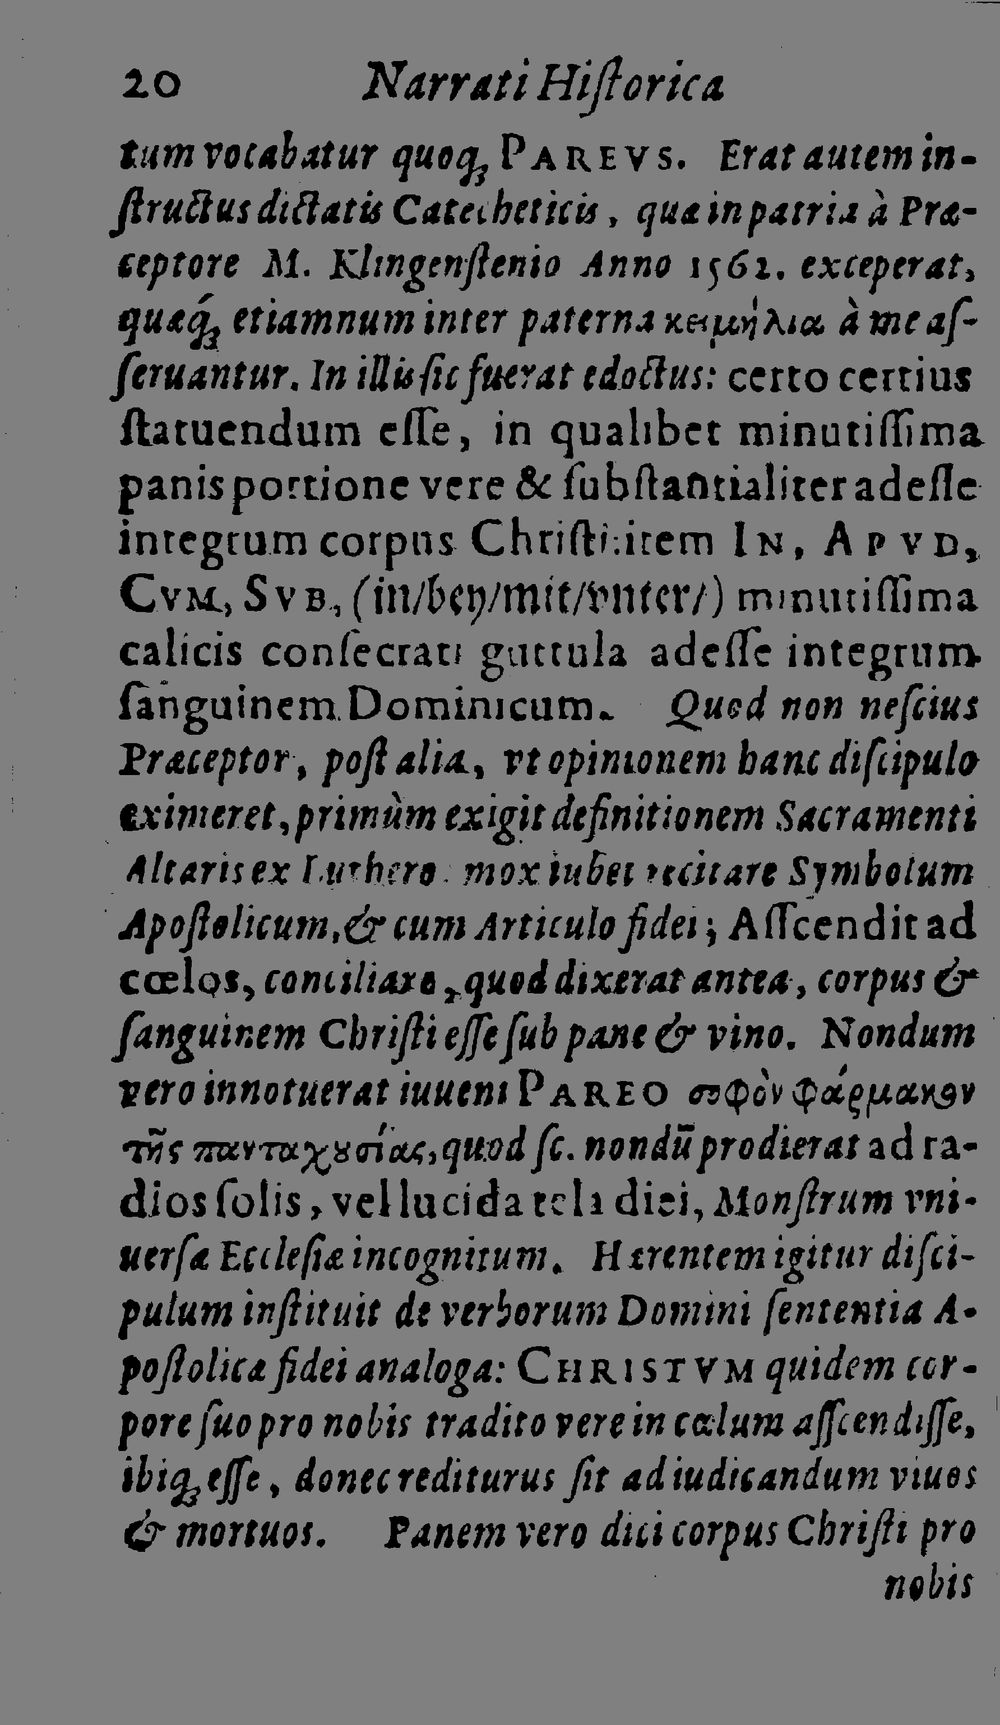 20 Narrati Hiſtorica
tum vocabatur quoq; PAREVS. Erat autem in-
ſtructus dictatis Catecheticis, quæ in patria à Præ-
ceptore M. Klingenſtenio Anno 1562. exceperat,
quæq́; etiamnum inter paterna κειμήλια à me aſ-
ſeruantur. In illis ſic fuerat edoctus: certo certius
ſtatuendum eſſe, in qualibet minutiſſima
panis portione vere & ſubſtantialiter adeſſe
integrum corpus Chriſti: item IN, APVD,
CVM, SVB, (in/bey/mit/vnter/) minutiſſima
calicis conſecrati guttula adeſſe integrum
ſanguinem Dominicum. Quod non neſcius
Præceptor, poſt alia, vt opinionem hanc diſcipulo
eximeret, primùm exigit definitionem Sacramenti
Altaris ex Luthero: mox iubet recitare Symbolum
Apoſtolicum, & cum Articulo fidei; Aſſcendit ad
cœlos, conciliare, quod dixerat antea, corpus &
ſanguinem Chriſti eſſe ſub pane & vino. Nondum
vero innotuerat iuueni PAREO σοφὸν φάρμακον
τῆς πανταχουσίας, quod ſc. nondū prodierat ad ra-
dios ſolis, vel lucida tela diei, Monſtrum vni-
uerſæ Eccleſiæ incognitum. Hærentem igitur diſci-
pulum inſtituit de verborum Domini ſententia A-
poſtolicæ fidei analoga: CHRISTVM quidem cor-
pore ſuo pro nobis tradito vere in cælum aſſcendiſſe,
ibiq; eſſe, donec rediturus ſit ad iudicandum viuos
& mortuos. Panem vero dici corpus Chriſti pro
nobis